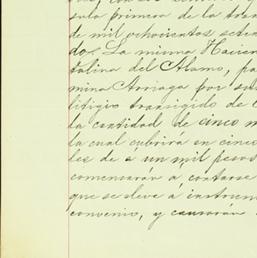 sula primera de la tran
de mil ochocientos seten
do. La misma Hacien
talina del Alamo, pa
mina Arriaga por
litigio transigido de
la cantidad de cinco m
la cual cubrirá en cinco
les de á un mil pesos
comenzarán á contarse
que se eleve á instrum
convenio, y causarán